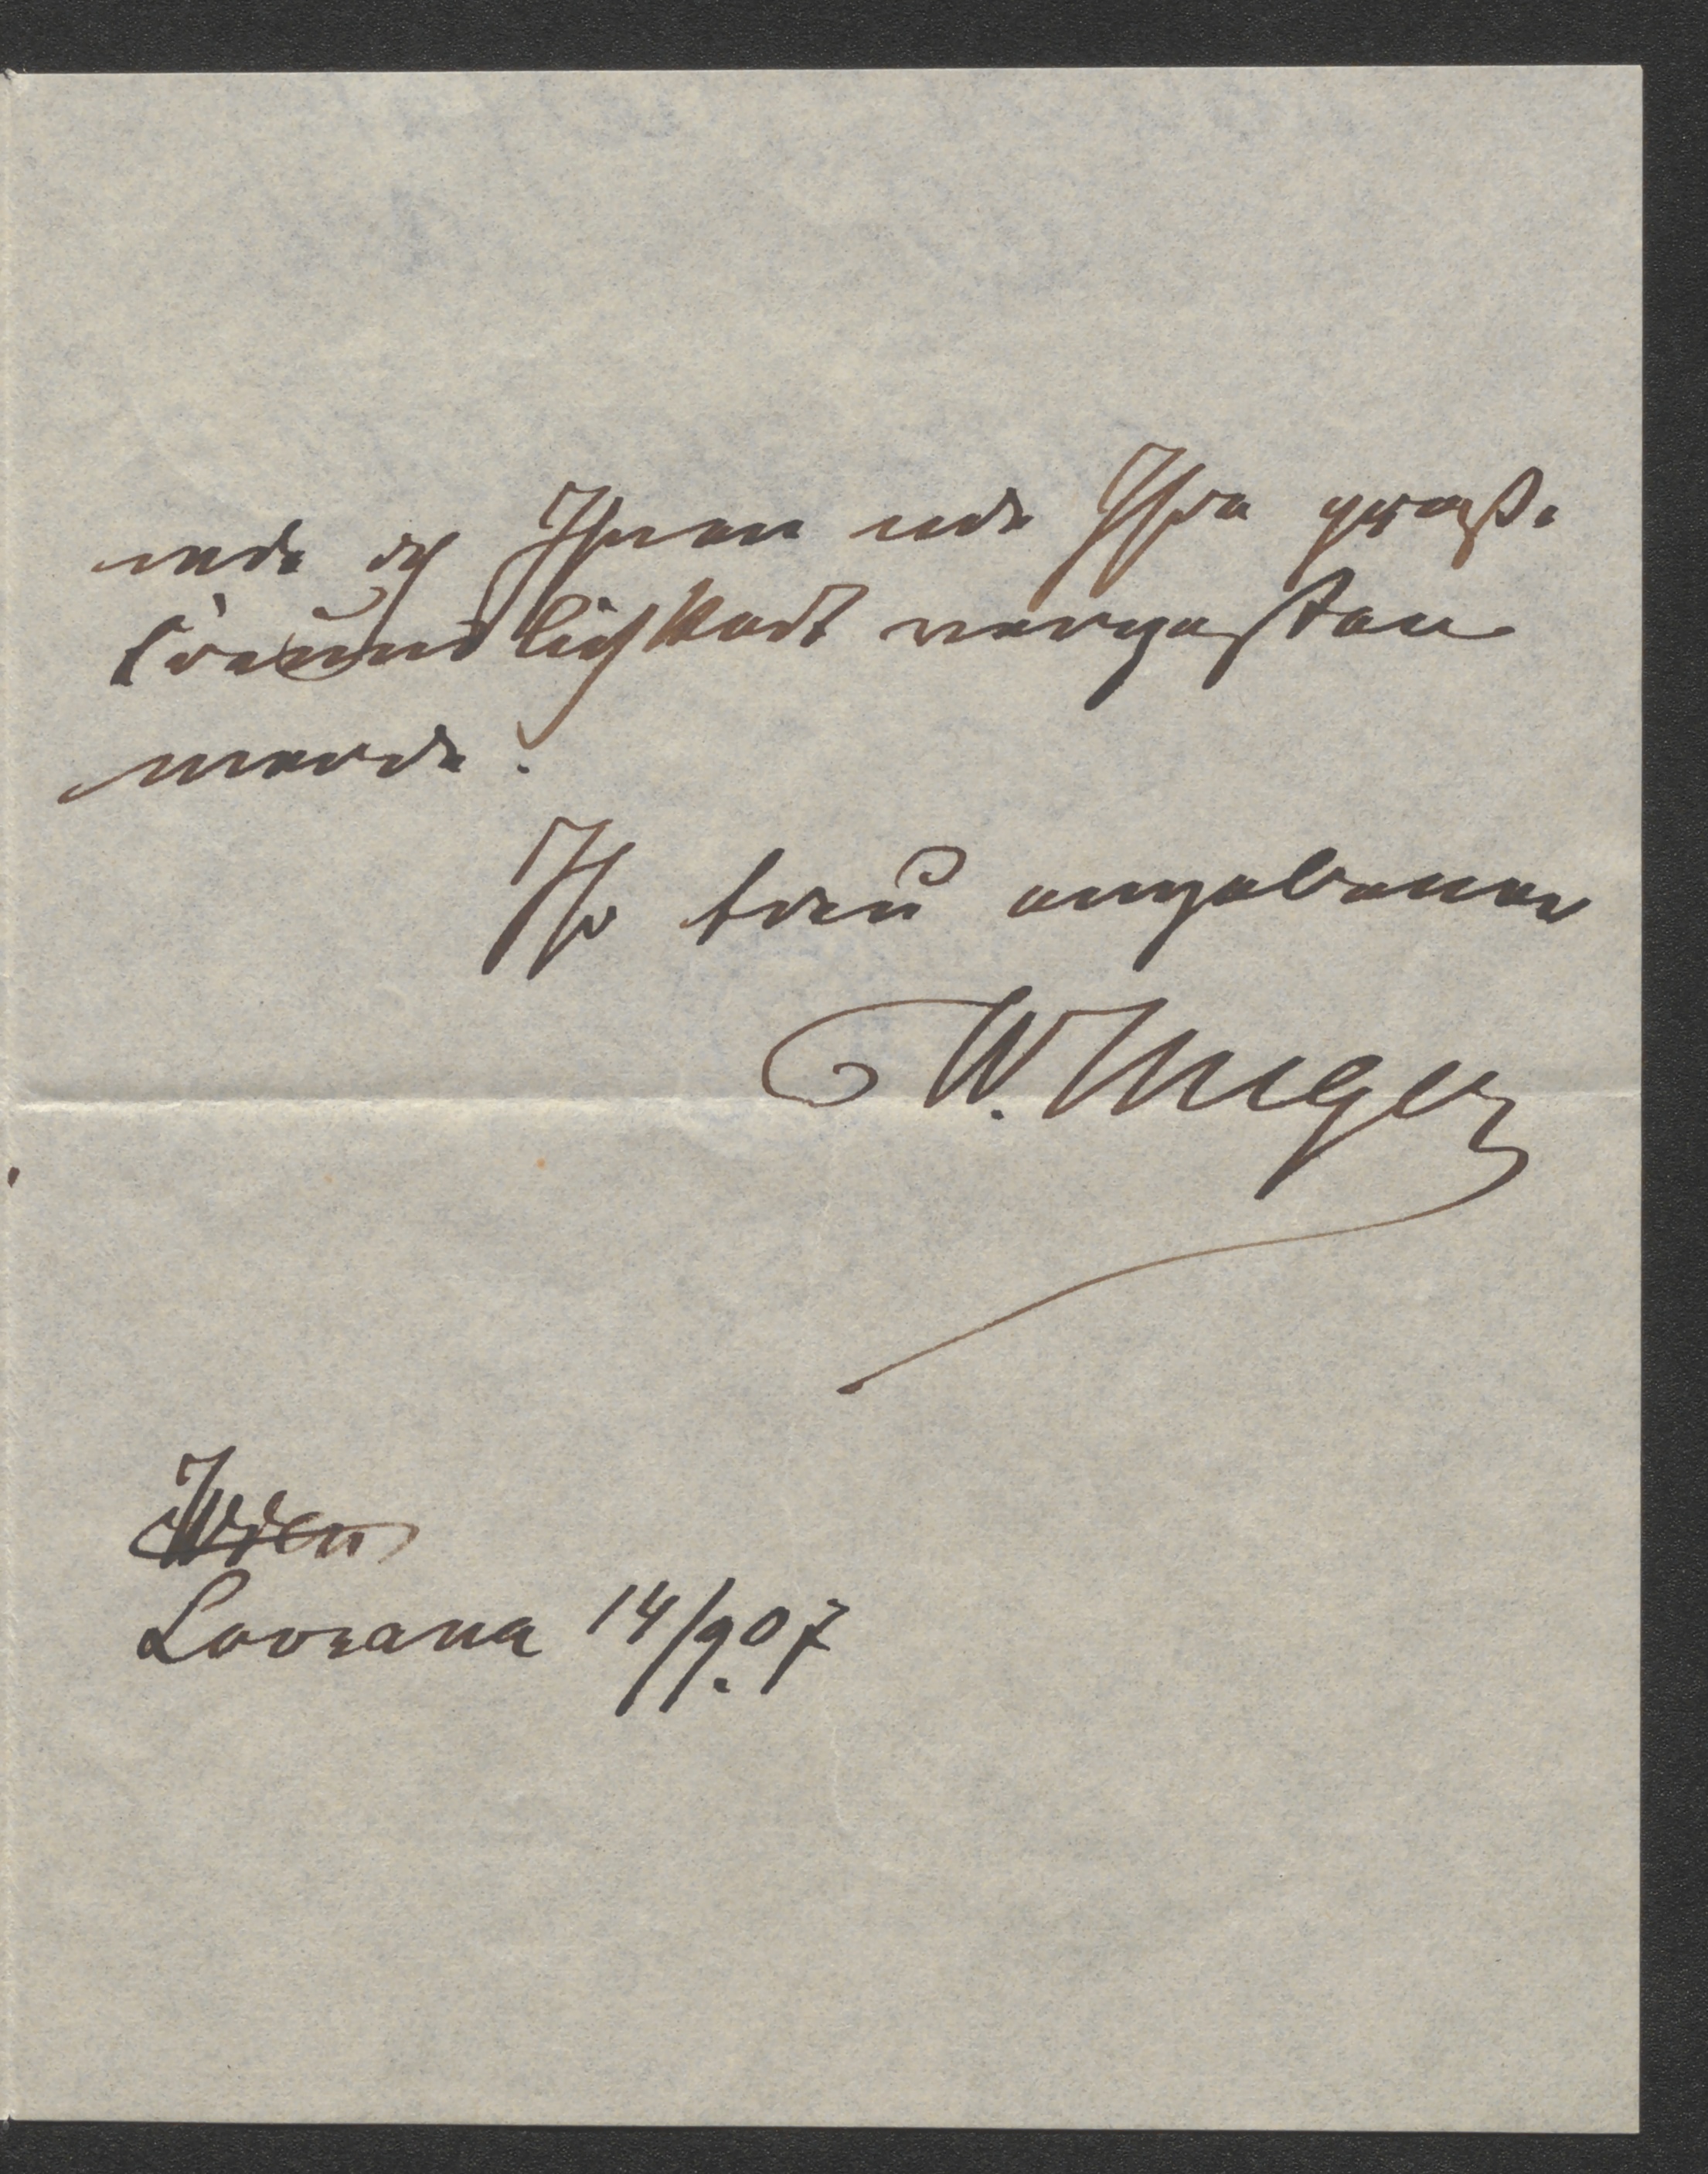 und ich Ihnen und Ihre große
Freundlichkeit vergessen
werde.
Ihr treu ergebener
W. Unger
Wien
Lovrana 14/9.07